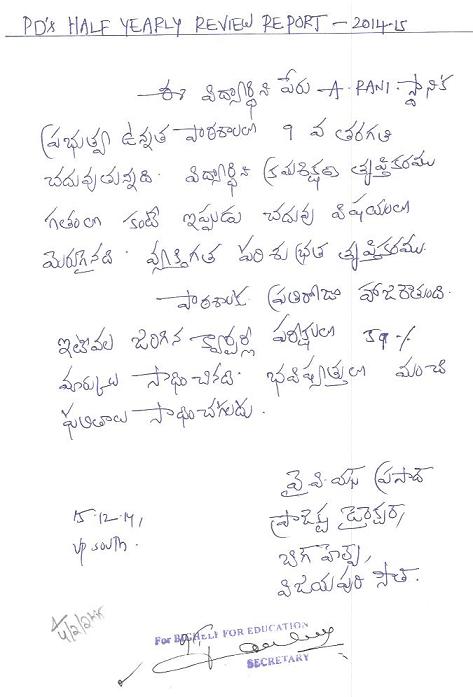 PD's HALF YEARLY REVIEW REPORT - 2014-15
ఈ విద్యార్థిని పేరు - A. RANI. స్థానిక
ప్రభుత్వ ఉన్నత పాఠశాలలో 9 వ తరగతి
చదువుతున్నది. విద్యార్థిని క్రమశిక్షణ తృప్తికరము
గతంలో కంటే ఇప్పుడు చదువు విషయంలో
మెరుగైనది. వ్యక్తిగత పరిశుభ్రత తృప్తికరము.
పాఠశాలకు ప్రతిరోజూ హాజరౌతుంది.
ఇటీవల జరిగిన క్వార్టర్లీ పరీక్షలలో 59%
మార్కులు సాధించినది. భవిష్యత్తులో మంచి
ఫలితాలు సాధించగలదు.
వై.వి.యస్ ప్రసాద్
ప్రాజెక్టు డైరెక్టర్,
బిగ్ హెల్ప్,
విజయపురి సౌత్.
15-12-14,
VP South.
For BIGHELP FOR EDUCATION
SECRETARY